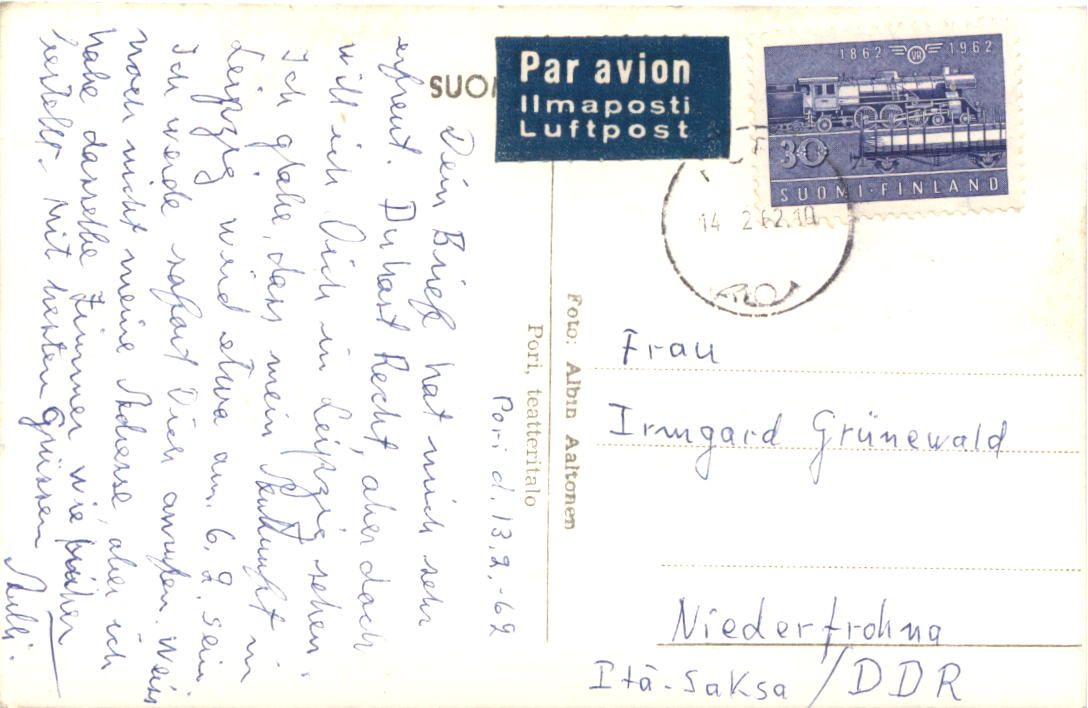 SUOM
Par avion
Ilmaposti
Luftpost
1862 VR 1962
30
SUOMI·FINLAND
14 2 62.10
Pori d. 13.2.-62
Dein Brief hat mich sehr
erfreut. Du hast Recht, aber doch
will ich Dich in Leipzig sehen.
Ich glabe, dass mein Ankunft in
Leipzig wird etwa am. 6.9. sein
Ich werde sofort Dich anrufen. Weiss
noch nicht meine Adresse, aber ich
habe dasselbe Zimmer wie früher
bestellt. Mit besten Grüssen
Foto: Albin Aaltonen
Pori, teatteritalo
Frau
Irmgard Grünewald
Niederfrohna
Itä-Saksa / DDR